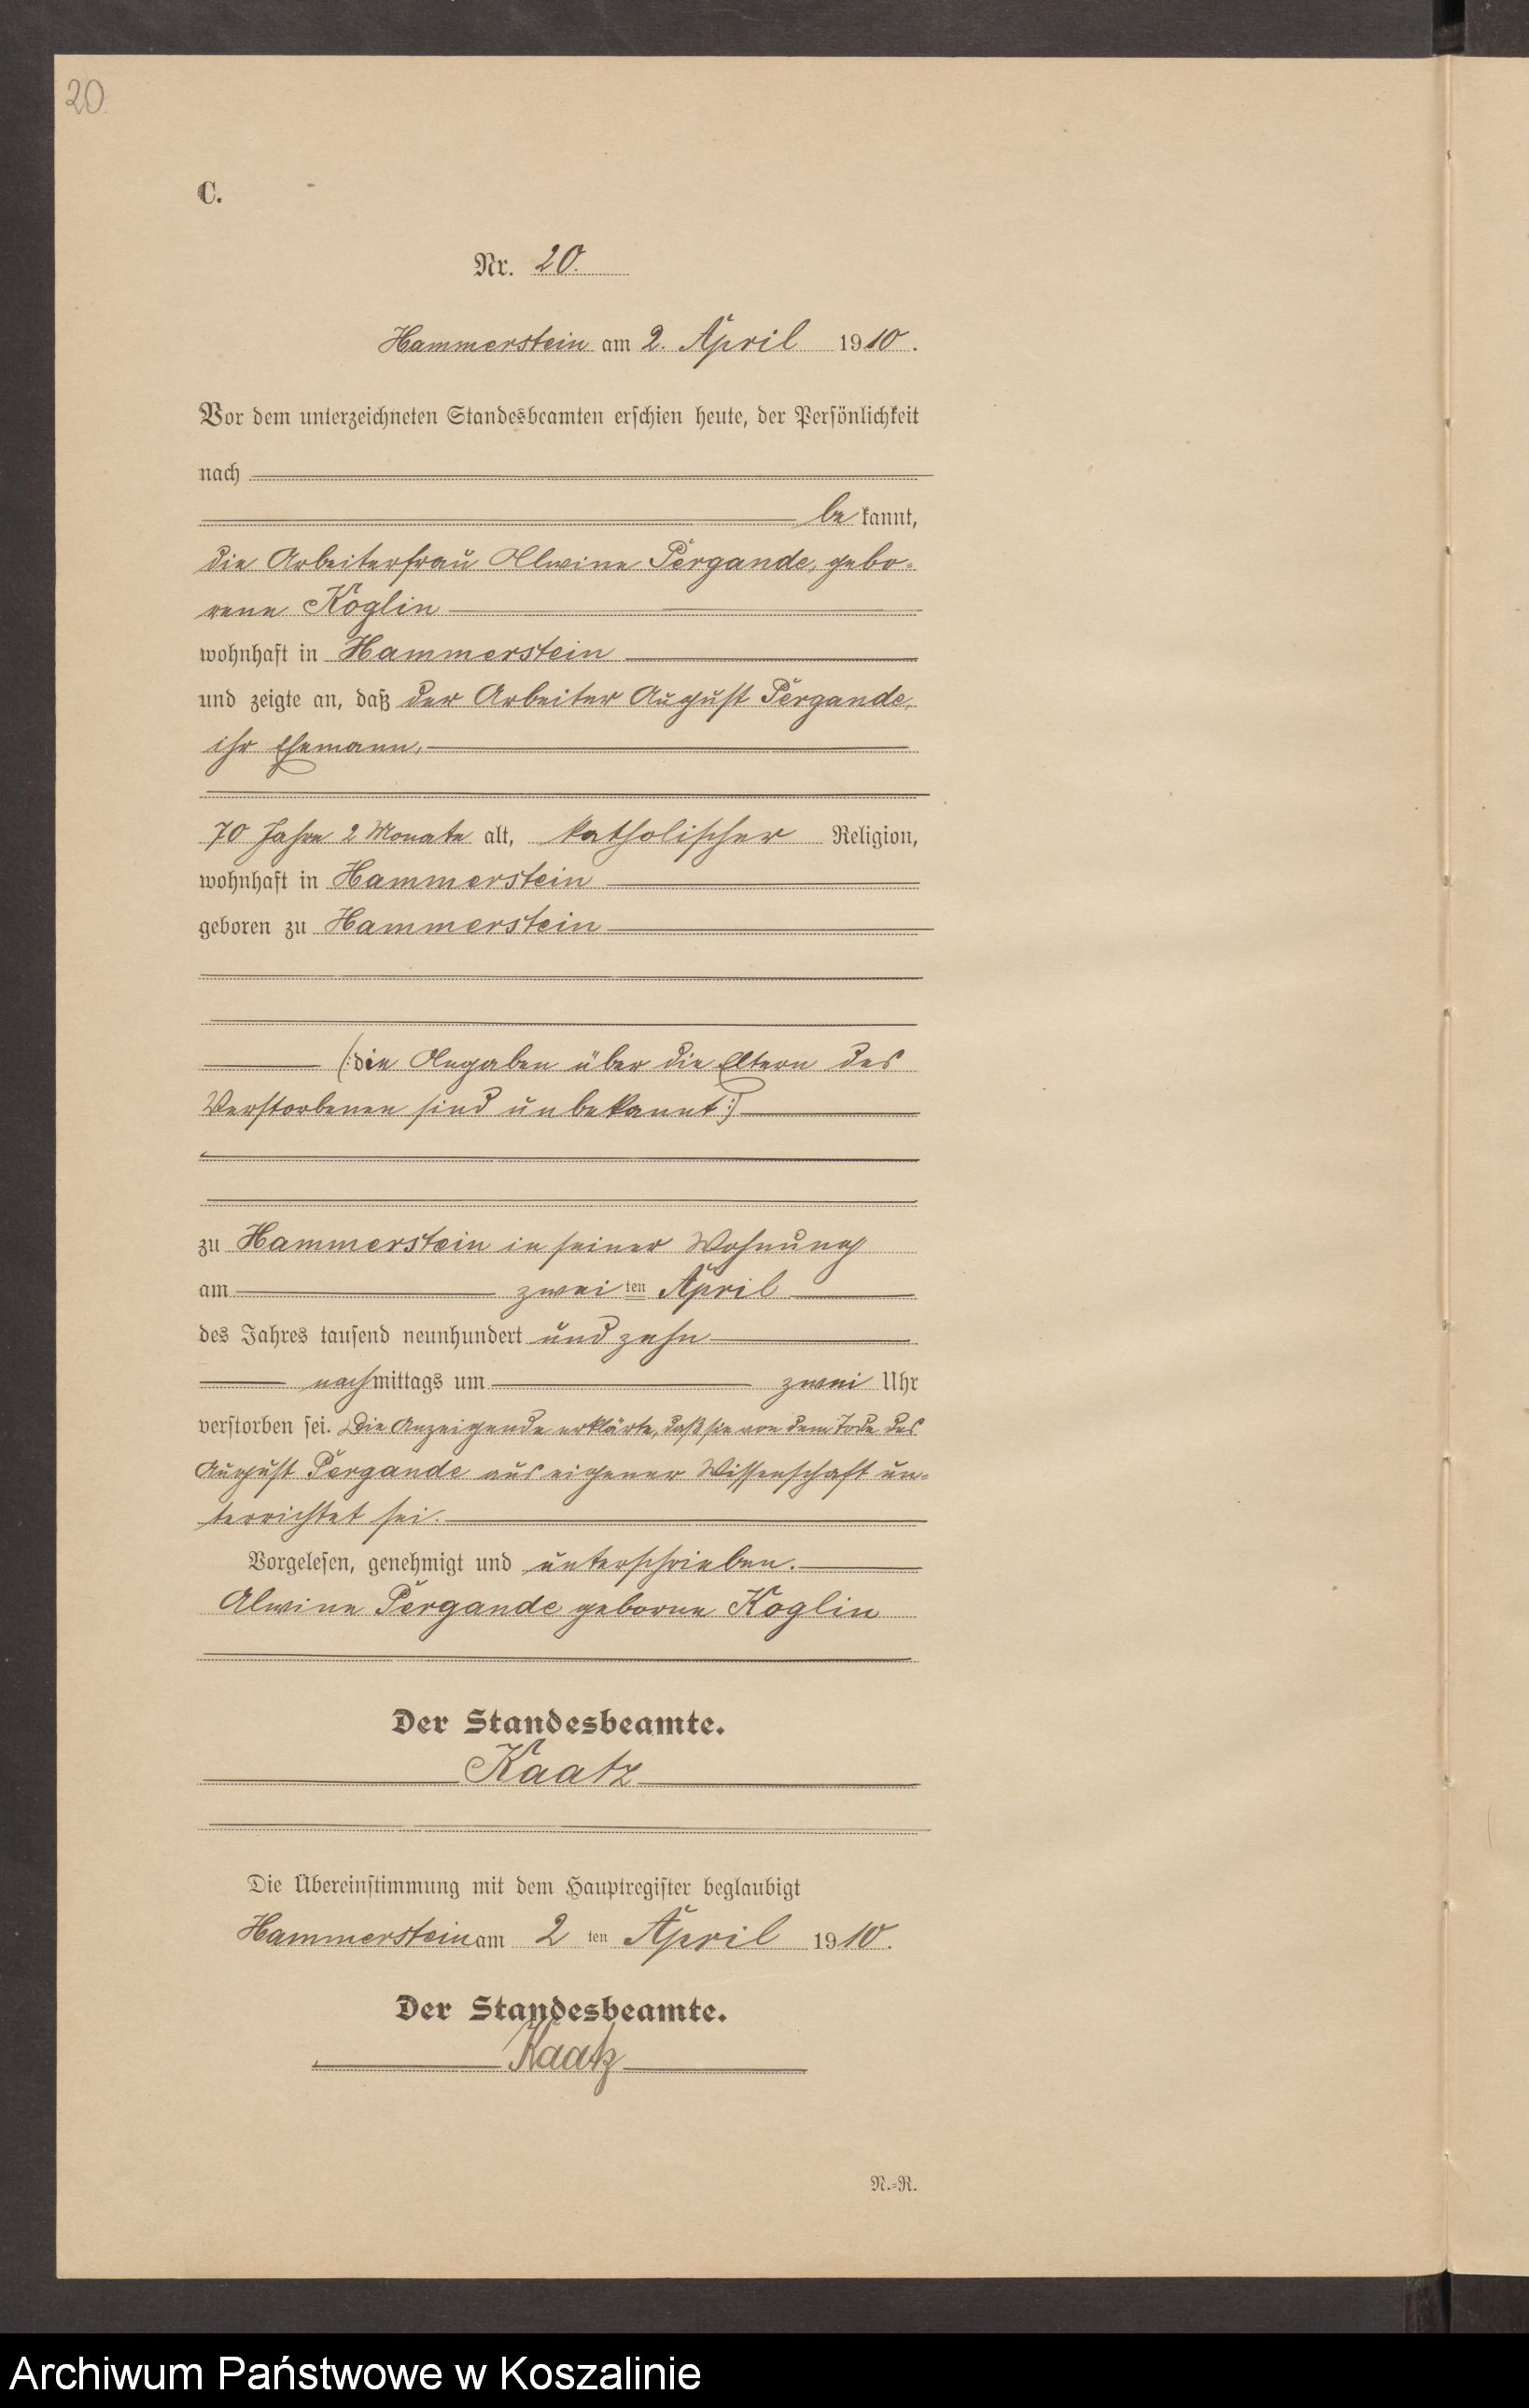 20.
C.
Nr. 20.
Hammerstein am 2. April 1910.
Vor dem unterzeichneten Standesbeamten erschien heute, der Persönlichkeit
nach
be kannt,
die Arbeiterfrau Alwine Pergande, gebo-
rene Koglin
wohnhaft in Hammerstein
und zeigte an, daß der Arbeiter August Pergande,
ihr Ehemann,
70 Jahre 2 Monate alt, katholischer Religion,
wohnhaft in Hammerstein
geboren zu Hammerstein
(:die Angaben über die Eltern des
Verstorbenen sind unbekannt:)
zu Hammerstein in seiner Wohnung
am zwei ten April
des Jahres tausend neunhundert und zehn
nachmittags um zwei Uhr
verstorben sei. Die Anzeigende erklärte, daß sie von dem Tode des
August Pergande aus eigener Wissenschaft un-
terrichtet sei.
Vorgelesen, genehmigt und unterschrieben.
Alwine Pergande geborne Koglin
Der Standesbeamte.
Kaatz
Die Übereinstimmung mit dem Hauptregister beglaubigt
Hammerstein am 2 ten April 1910.
Der Standesbeamte.
Kaatz
N.-R.
Archiwum Państwowe w Koszalinie